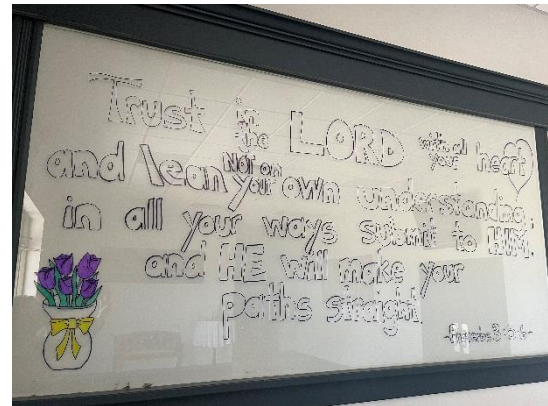 Trust in the LORD with all your heart
and lean Not on your own understanding;
in all your ways submit to HIM.
and HE will make your
paths straight.
-Proverbs 3:5-6-